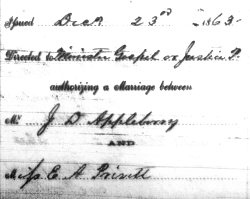 Issued Dec. 23rd 1863
Directed to Minister Gospel or Justice P.
authorizing a Marriage between
Mr. J D Appleberry
AND
M E A Privett